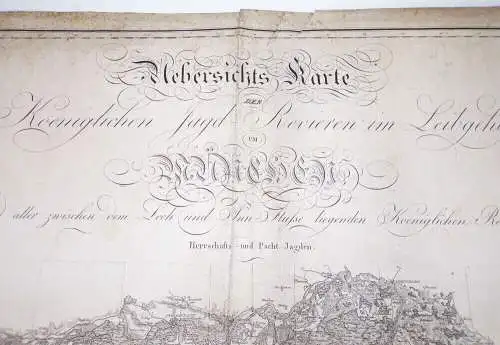 Uebersichts Karte
DER
Koeniglichen Jagd Revieren im Leibgeh
UM
MÜNCHEN
aller zwischen dem Lech und Inn Fluße liegenden Koeniglichen Re
Herrschafts und Pacht Jagden.